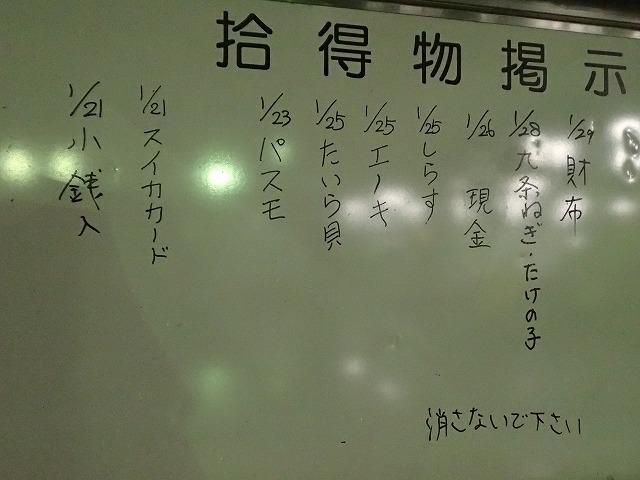 拾得物掲示
1/29 財布
1/28 九条ねぎ・たけの子
1/26 現金
1/25 しらす
1/25 エノキ
1/25 たいら貝
1/23 パスモ
1/21 スイカカード
1/21 小銭入
消さないで下さい